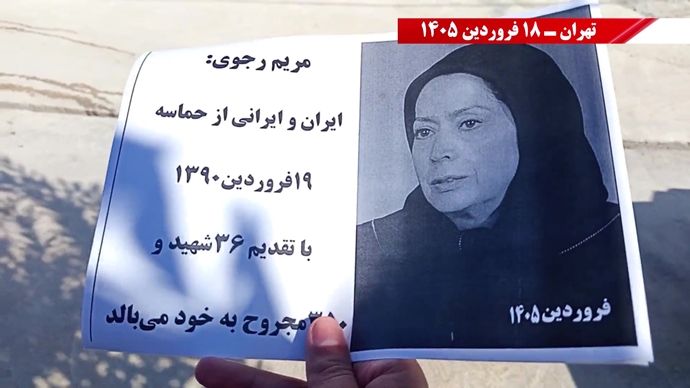 تهران ـ ۱۸ فروردین ۱۴۰۵
مریم رجوی:
ایران و ایرانی از حماسه
۱۹فروردین۱۳۹۰
با تقدیم ۳۶شهید و
۳۵۰مجروح به خود می‌بالد
فروردین۱۴۰۵